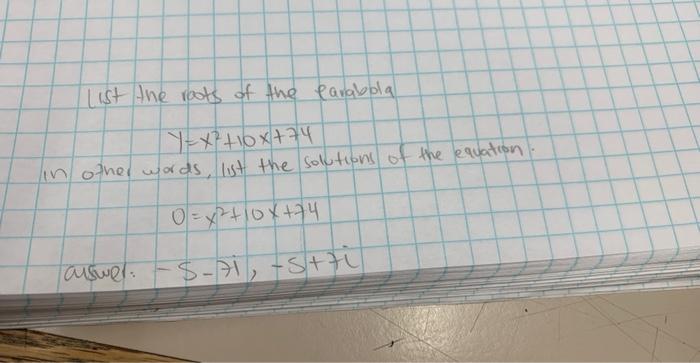 List the roots of the parabola
y=x²+10x+74
in other words, list the solutions of the equation.
0=x²+10x+74
answer: -5-7i, -5+7i